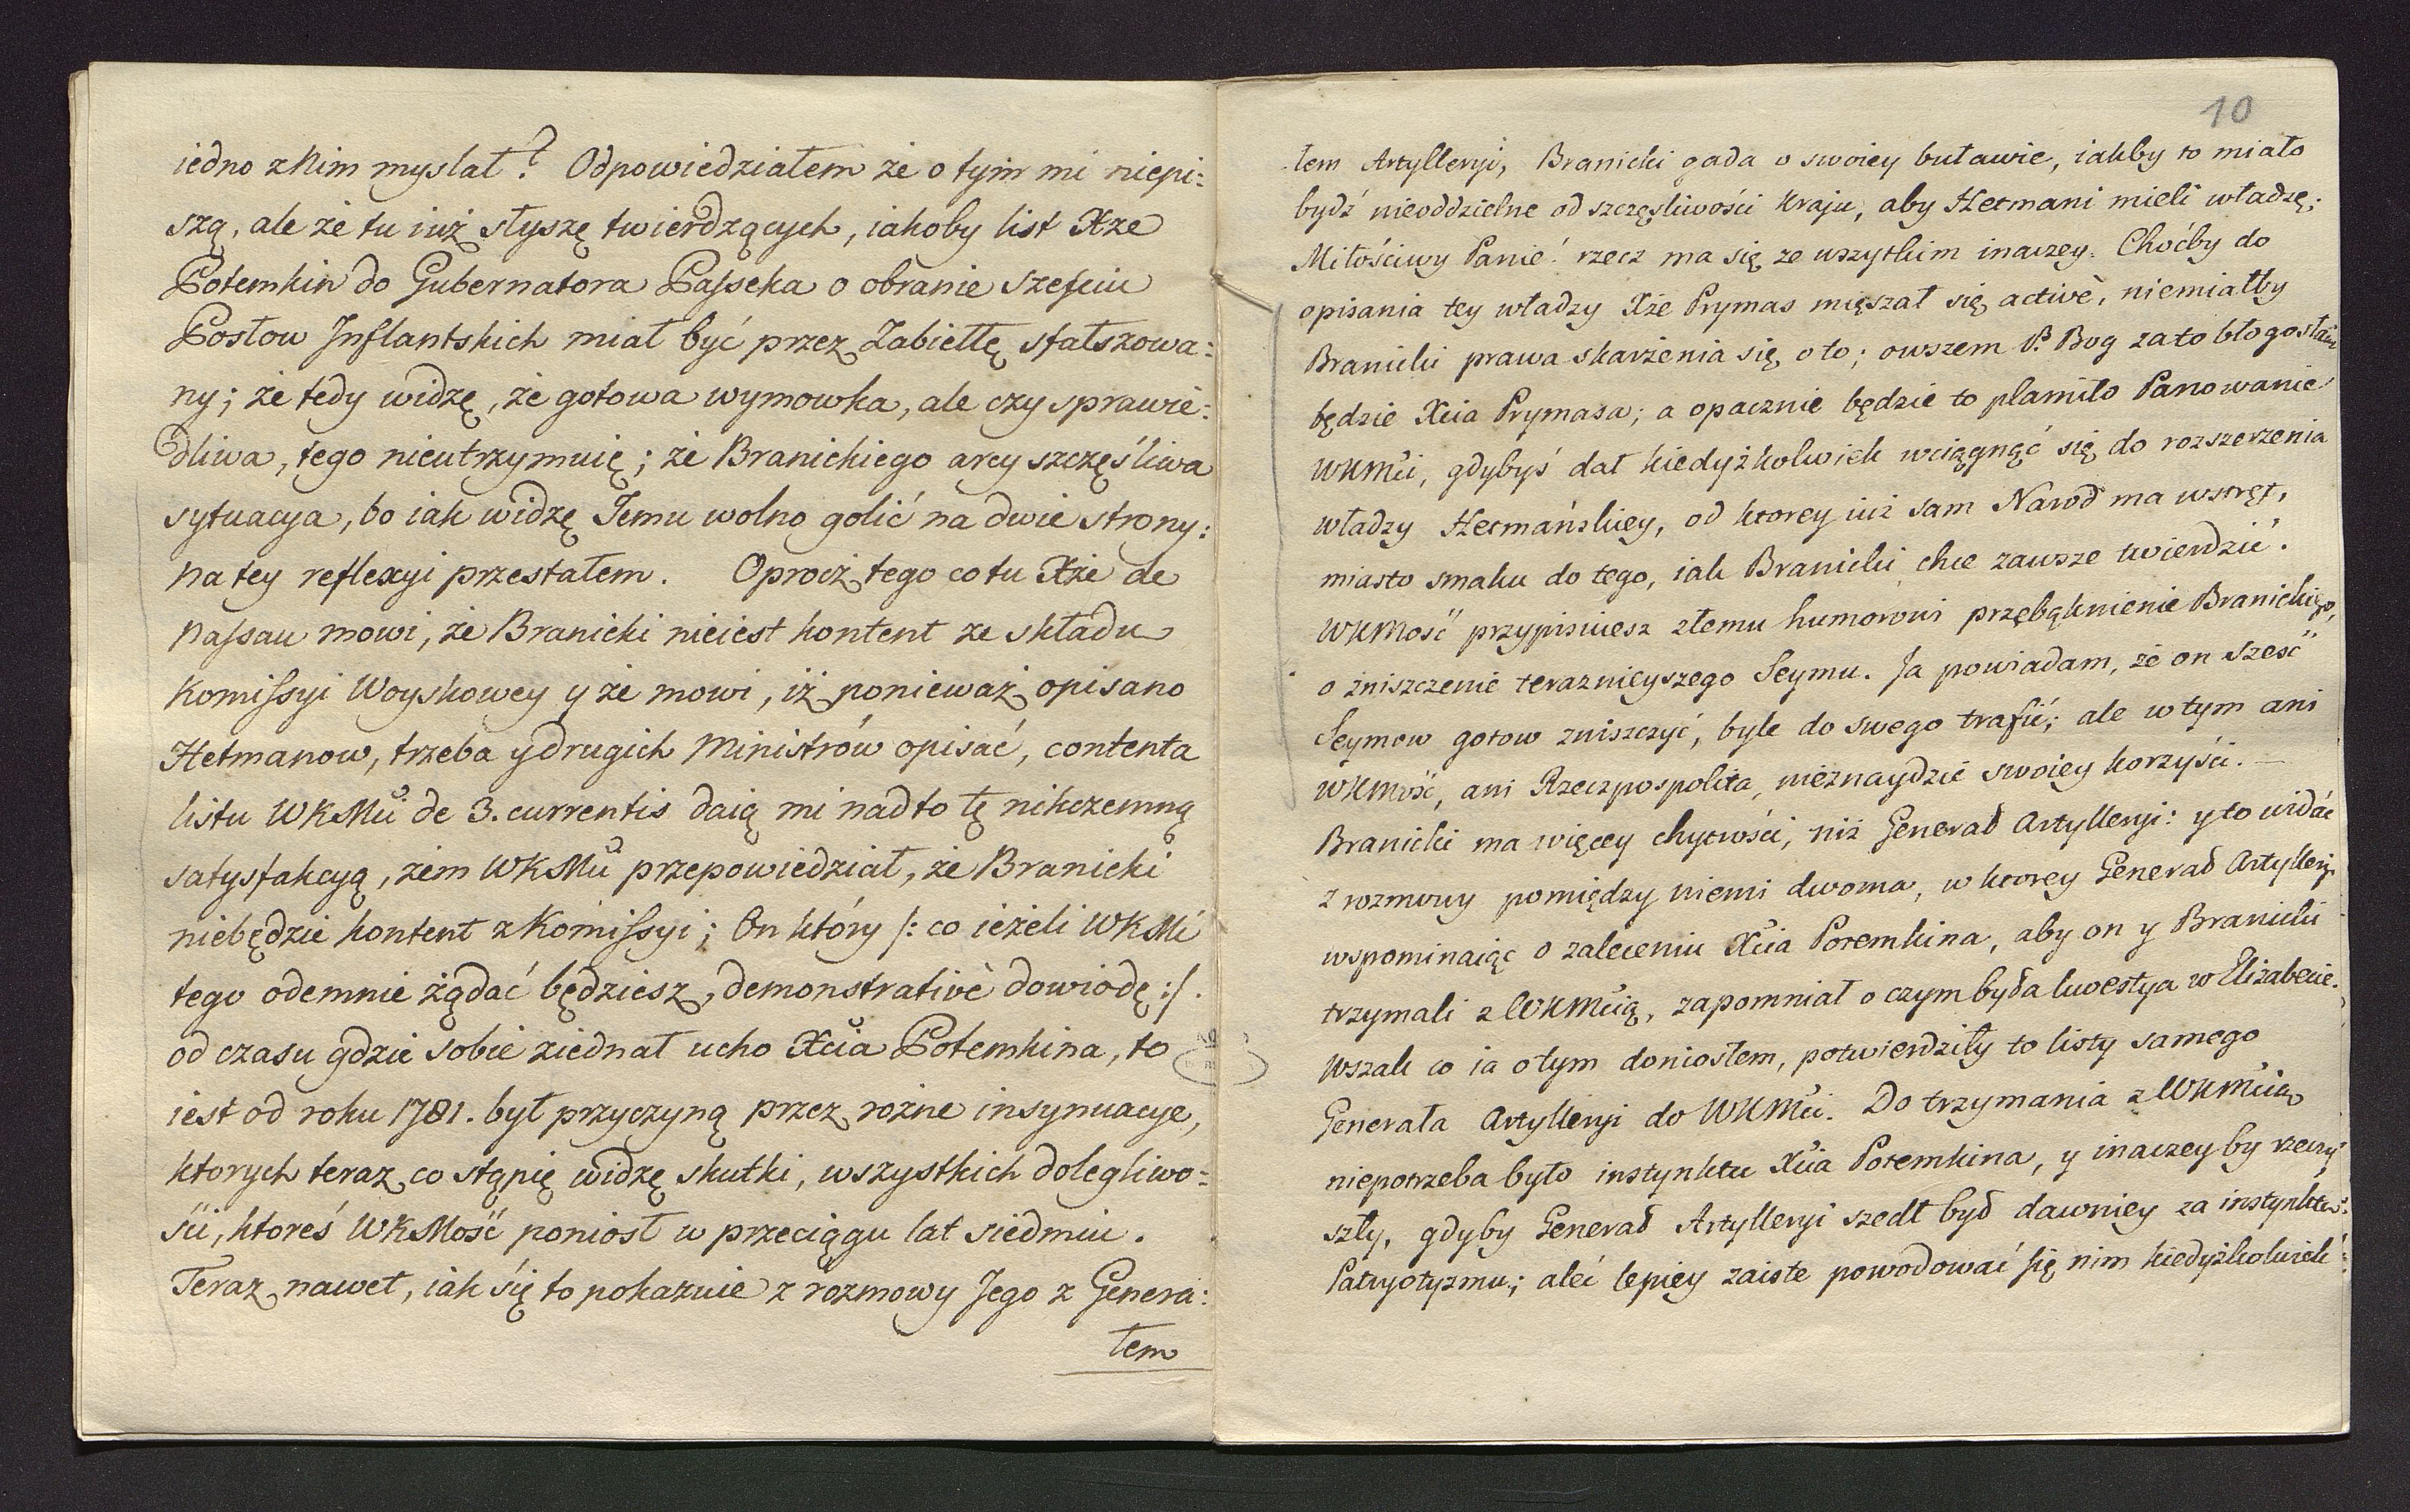 iedno z Nim myslał? Odpowiedziałem że o tym mi niepi:
szą, ale że tu iuż słyszę twierdzących, iakoby list Xże
Potemkin do Gubernatora Paſseka o obranie sześciu
Posłow Inflantskich miał być przez Zabiełłę sfałszowa:
ny; że tedy widzę, że gotowa wymowka, ale czy sprawie:
dliwa, tego nieutrzymuię; że Branickiego arcy szczęśliwa
sytuacya, bo iak widzę Jemu wolno golić na dwie strony:
na tey reflexyi przestałem. Oprocz tego co tu Xże de
Naſsau mowi, że Branicki nieiest kontent ze składu
Komiſsyi Woyskowey y że mowi, iż ponieważ opisano
Hetmanow, trzeba y drugich Ministrów opisać, contenta
listu WKMći de 3. currentis daią mi nadto tę nikczemną
satysfakcyą, żem WKMći przepowiedział, że Branicki
niebędzie kontent z Komiſsyi; On który /: co ieżeli WKMć
tego odemnie żądać będziesz, demonstrativè dowiodę :/.
od czasu gdzie sobie ziednał ucho Xcia Potemkina, to
iest od roku 1781. był przyczyną przez rożne insynuacye,
ktorych teraz co stąpię widzę skutki, wszystkich dolegliwo:
ści, ktoreś WKMość poniosł w przeciągu lat siedmiu.
Teraz nawet, iak się to pokazuie z rozmowy Jego z Genera:
łem
10
łem Artylleryi, Branicki gada o swoiey buławie, iakby to miało
bydź nieoddzielne od szczęśliwości Kraju, aby Hetmani mieli władzę:
Miłościwy Panie! rzecz ma się ze wszytkim inaczey. Choćby do
opisania tey władzy Xże Prymas mięszał się activè, niemiałby
Branicki prawa skarżenia się o to; owszem P. Bog za to błogosław
będzie Xcia Prymasa; a opacznie będzie to plamiło Panowanie
WKMći, gdybyś dał kiedyżkolwiek wciągnąć się do rozszerzenia
władzy Hetmańskiey, od ktorey iuż sam Narod ma wstręt,
miasto smaku do tego, iak Branicki chce zawsze twierdzić.
WKMość przypisuiesz złemu humorowi przębąknienie Branickiego,
o zniszczenie teraznieyszego Seymu. Ja powiadam, że on sześć
Seymow gotow zniszczyć, byle do swego trafić; ale w tym ani
WKMość, ani Rzeczpospolita, nieznaydzie swoiey korzyści. —
Branicki ma więcey chytrości, niż Generał Artylleryi: y to widać
z rozmowy pomiędzy niemi dwoma, w ktorey Generał Artylleryi
wspominaiąc o zaleceniu Xcia Potemkina, aby on y Branicki
trzymali z WKMcią, zapomniał o czym była kwestya w Elizabecie.
Wszak co ia o tym doniosłem, potwierdziły to listy samego
Generała Artylleryi do WKMći. Do trzymania z WKMcią
niepotrzeba było instynktu Xcia Potemkina, y inaczeyby rzeczy
szły, gdyby Generał Artylleryi szedł był dawniey za instynktem
Patryotyzmu; aleć lepiey zaiste powodować się nim kiedyżkolwiek